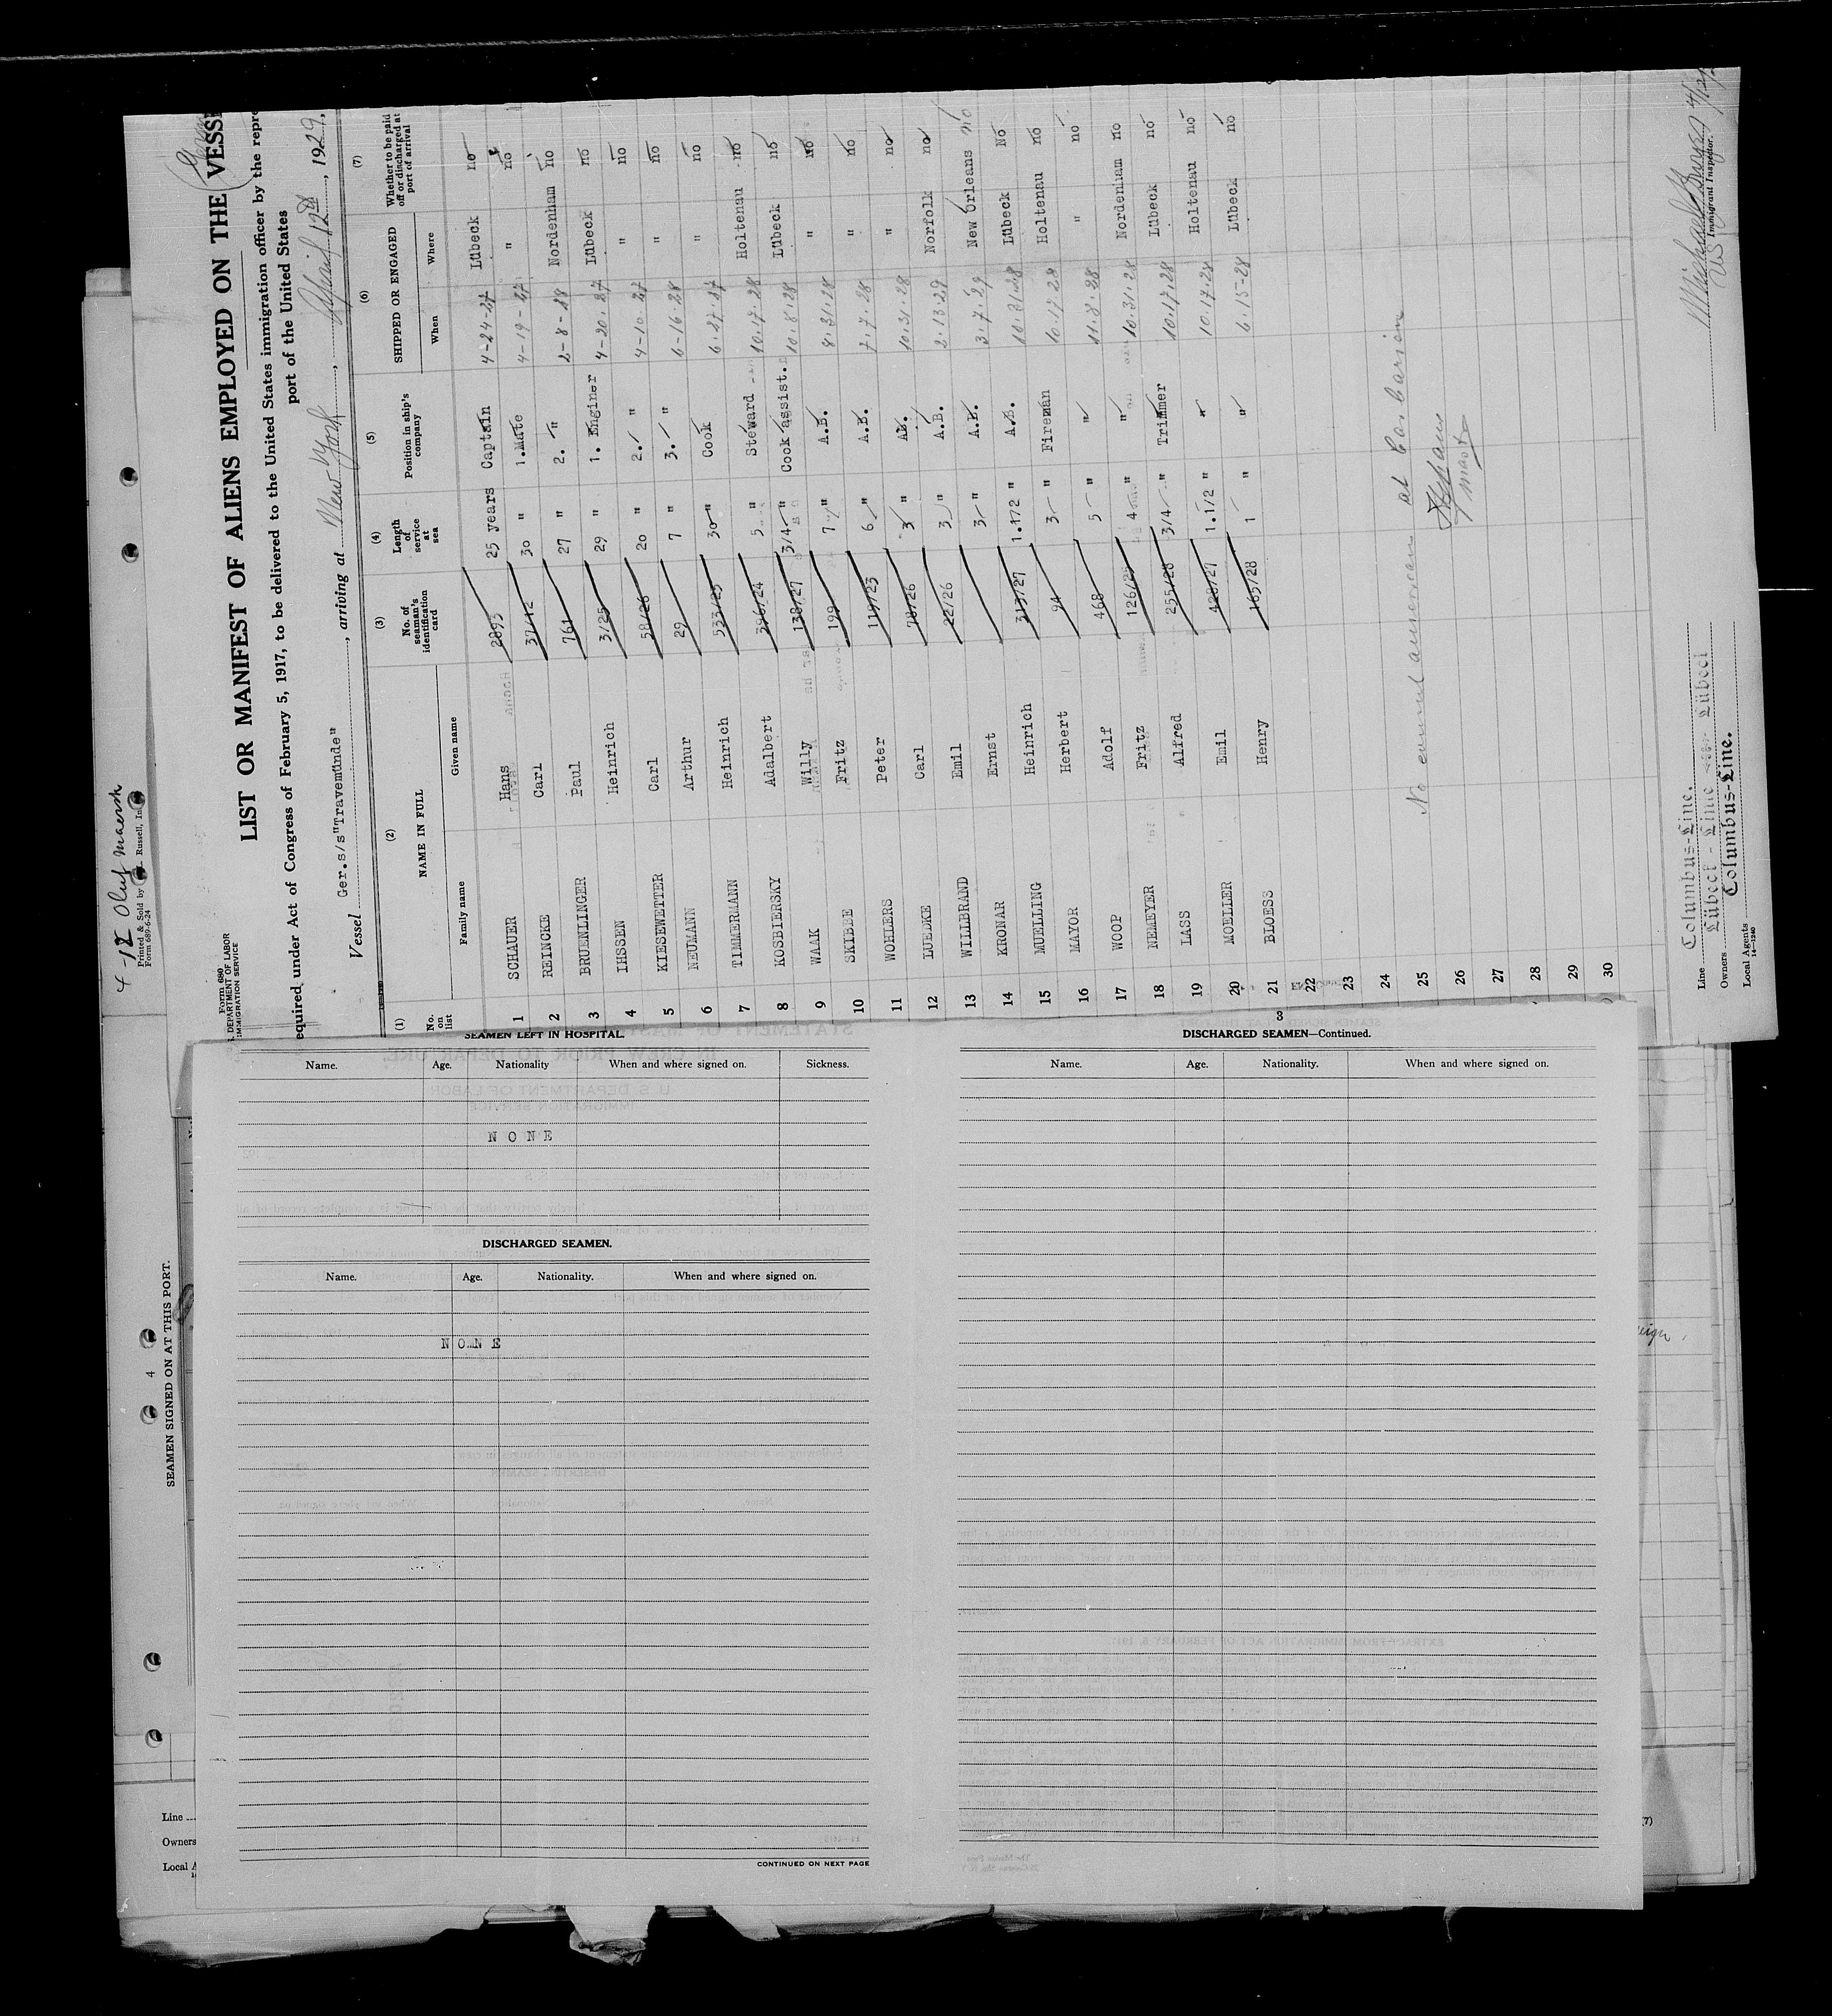 4 - 12 Oluf Maersk
Form 680
DEPARTMENT OF LABOR
IMMIGRATION SERVICE
Printed & Sold by
Russell, In
Form 689-6-24
LIST OR MANIFEST OF ALIENS EMPLOYED ON THE VESSE
equired under Act of Congress of February 5, 1917, to be delivered to the United States immigration officer by the repre
port of the United States
Vessel Ger.s/s"Travemünde", arriving at New York, April 12th, 1929,
(1) (2) (3) (4) (5) (6) (7)
No. on list
NAME IN FULL
Family name Given name
No. of seaman's identification card
Length of service at sea
Position in ship's company
SHIPPED OR ENGAGED
When Where
Whether to be paid off or discharged at port of arrival
1 SCHAUER Hans 2893 25 years Captain 4-24-27 Lübeck no
2 REINCKE Carl 37/12 30 " 1.Mate 4-19-27 " no
3 BRUENLINGER Paul 761 27 " 2. " 2-8-28 Nordenham no
4 IHSSEN Heinrich 3/25 29 " 1. Enginer 4-20.27 Lübeck no
5 KIESEWETTER Carl 58/26 20 " 2. " 4-10.27 " no
6 NEUMANN Arthur 29 7 " 3. " 6-16.28 " no
7 TIMMERMANN Heinrich 533/25 30 " Cook 6.27.27 " no
8 KOSBIERSKY Adalbert 396/24 5 " Steward 10.17.28 Holtenau no
9 WAAK Willy 138/27 3/4 " Cook assist. 10.8.28 Lübeck no
10 SKIBBE Fritz 199 7 " A.B. 8.31.28 " no
11 WOHLERS Peter 119/23 6 " A.B. 7.7.28 " no
12 LUEDKE Carl 78/26 3 " AB. 10.31.28 " no
13 WILLBRAND Emil 22/26 3 " A.B. 2.13.29 Norfolk no
14 KRONAR Ernst 3 " A.B. 3.7.29 New Orleans no
15 MUELLING Heinrich 313/27 1.1/2 " A.B. 10.31.28 Lübeck No
16 MAYOR Herbert 94 3 " Fireman 10.17.28 Holtenau no
17 WOOP Adolf 468 5 " " 11.8.28 " no
18 NEMEYER Fritz 126/25 4 " " 10.31.28 Nordenham no
19 LASS Alfred 255/28 3/4 " Trimmer 10.17.28 Lübeck no
20 MOELLER Emil 428/27 1.1/2 " " 10.17.28 Holtenau no
21 BLOESS Henry 165/28 1 " " 6.15-28 Lübeck no
22
23
24
25
26
27
28
29
30
No consul american at Caibarien
Master
Line Columbus-Line.
Owners Lübeck-Linie Lübeck
Local Agents Columbus-Line.
14-1240
Immigrant Inspector.
4
SEAMEN SIGNED ON AT THIS PORT.
Line
Owners
Local A
SEAMEN LEFT IN HOSPITAL.
Name. Age. Nationality When and where signed on. Sickness.
N O N E
DISCHARGED SEAMEN.
Name. Age. Nationality. When and where signed on.
N O N E
CONTINUED ON NEXT PAGE
3
DISCHARGED SEAMEN—Continued.
Name. Age. Nationality. When and where signed on.
(7)